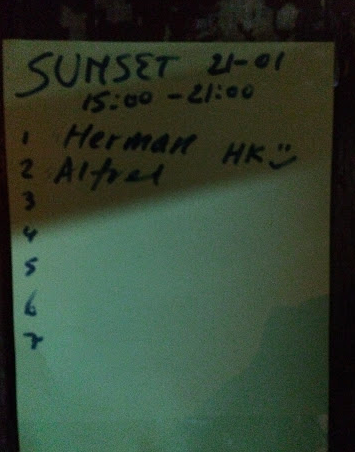 SUNSET 21-01
15:00 - 21:00
1 Herman HK
2 Alfred
3
4
5
6
7